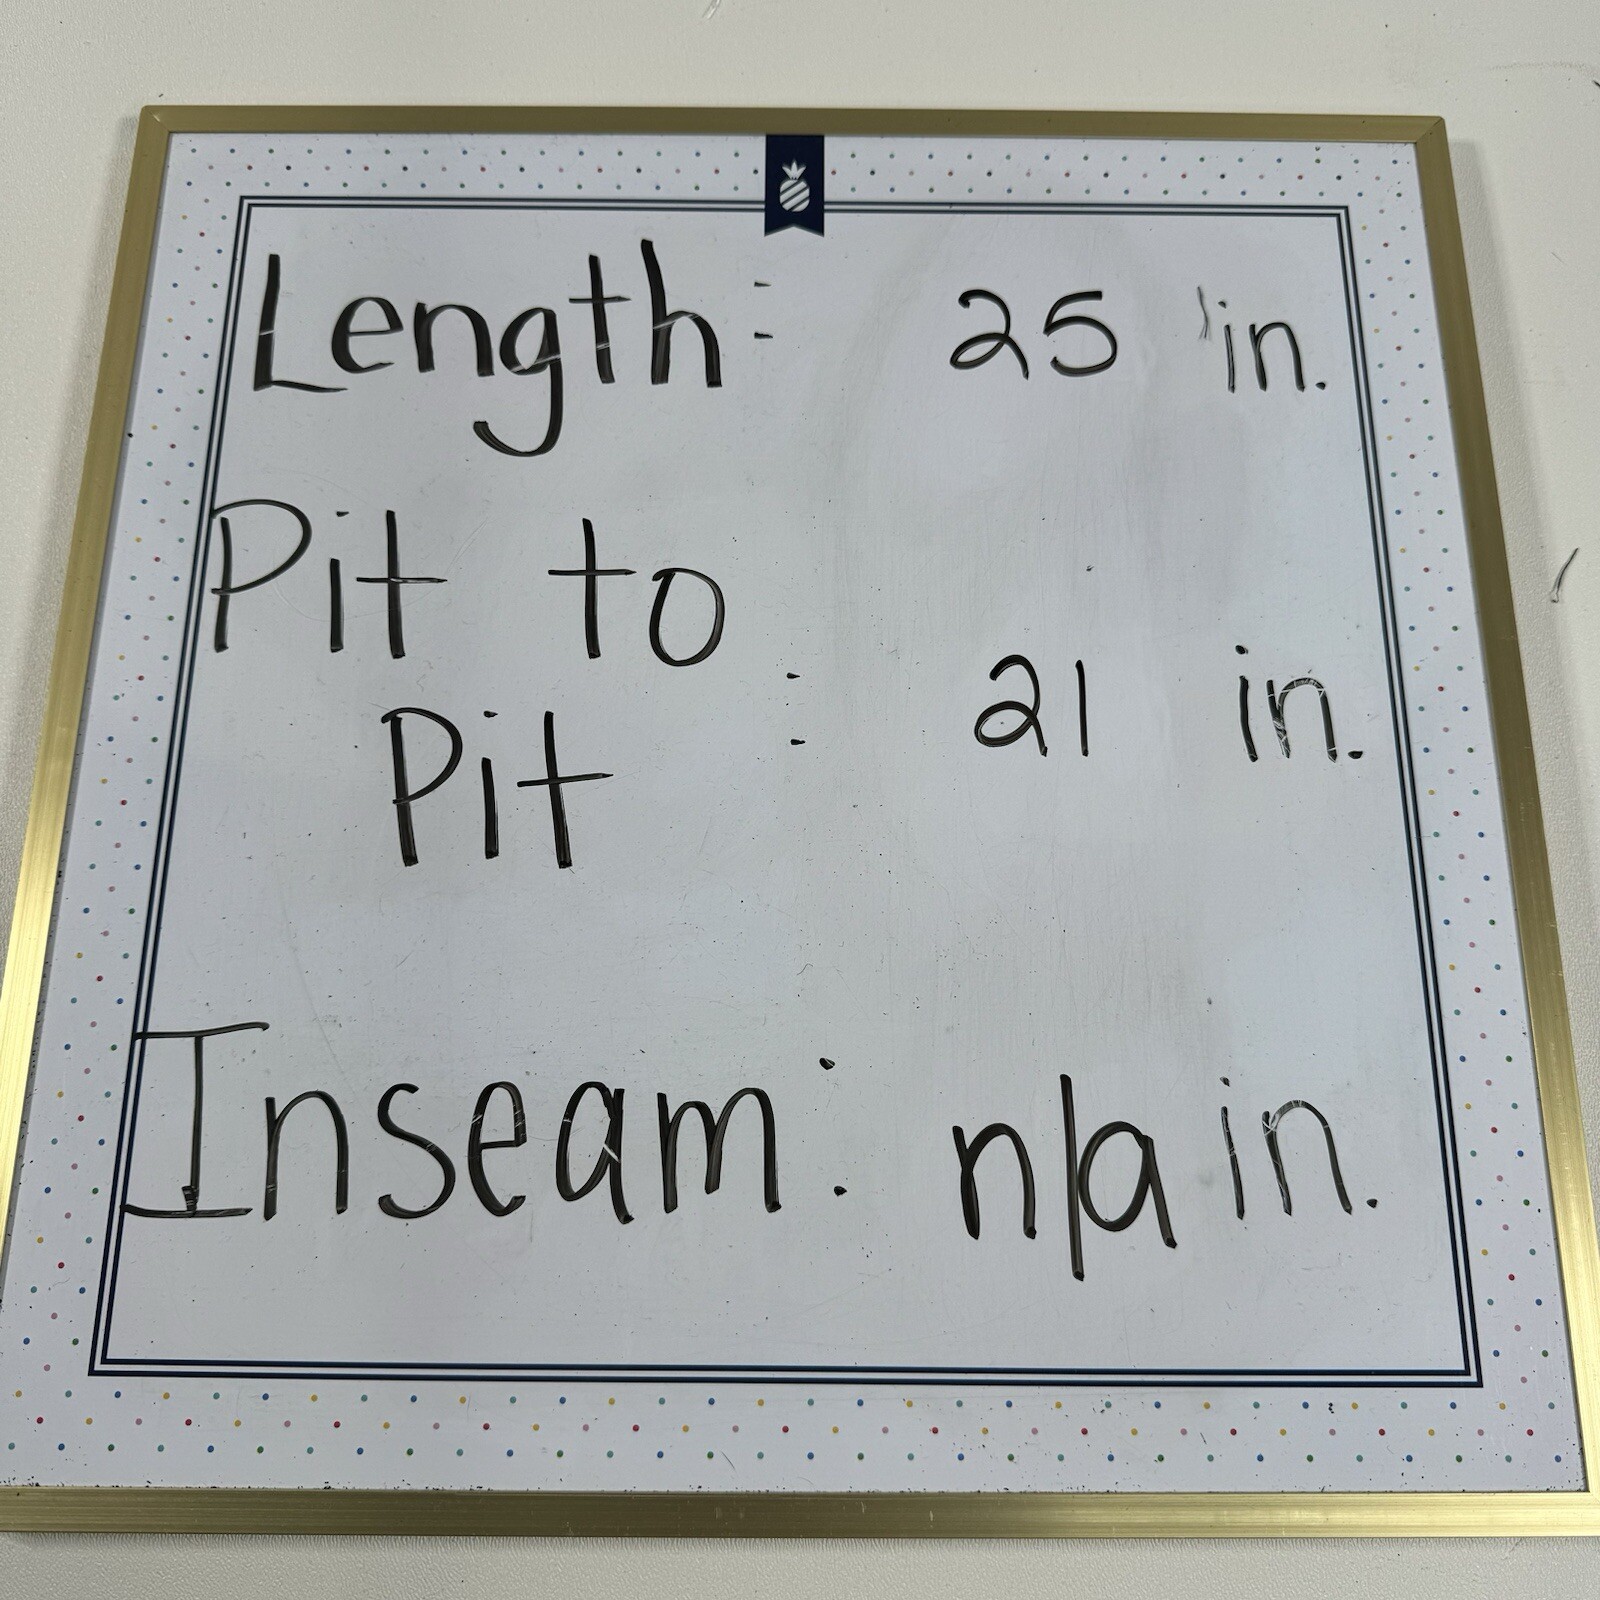 Length: 25 in.
Pit to
Pit : 21 in.
Inseam: n/a in.